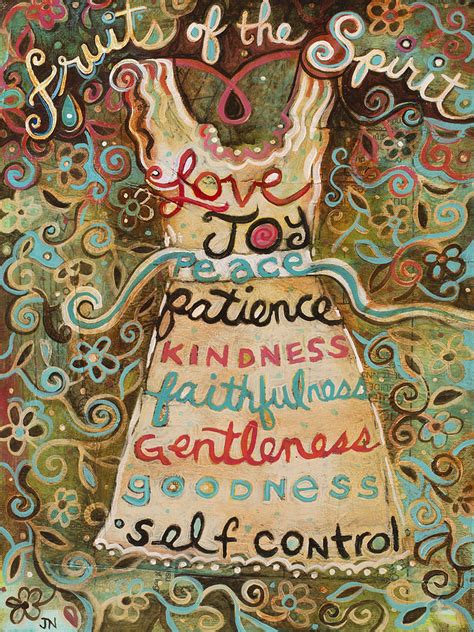 Fruits of the Spirit
Love
Joy
Peace
Patience
KINDNESS
faithfulness
Gentleness
GOODNESS
self control
JN